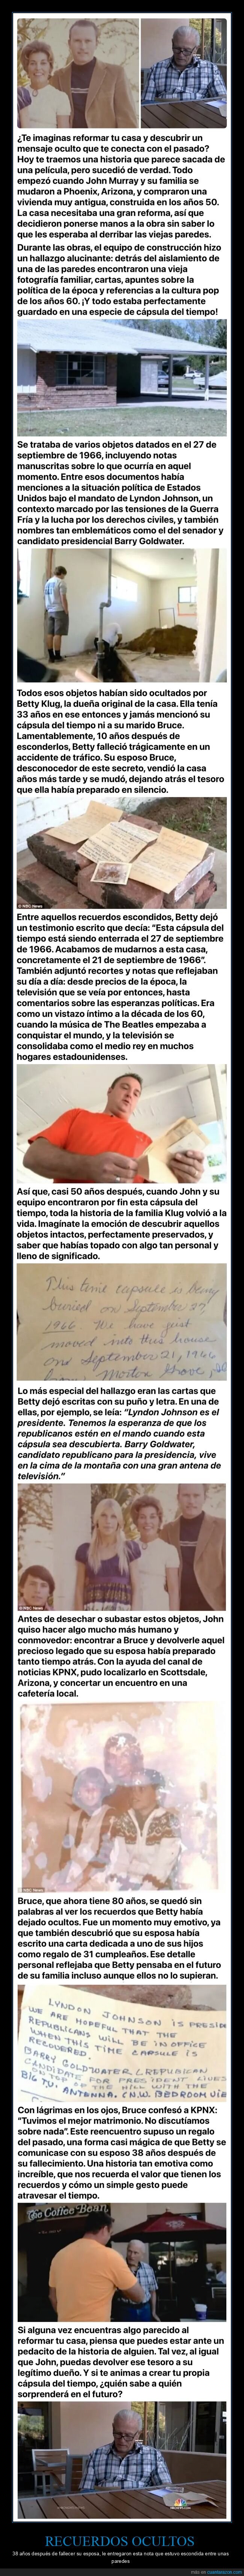 ¿Te imaginas reformar tu casa y descubrir un
mensaje oculto que te conecta con el pasado?
Hoy te traemos una historia que parece sacada de
una película, pero sucedió de verdad. Todo
empezó cuando John Murray y su familia se
mudaron a Phoenix, Arizona, y compraron una
vivienda muy antigua, construida en los años 50.
La casa necesitaba una gran reforma, así que
decidieron ponerse manos a la obra sin saber lo
que les esperaba al derribar las viejas paredes.
Durante las obras, el equipo de construcción hizo
un hallazgo alucinante: detrás del aislamiento de
una de las paredes encontraron una vieja
fotografía familiar, cartas, apuntes sobre la
política de la época y referencias a la cultura pop
de los años 60. ¡Y todo estaba perfectamente
guardado en una especie de cápsula del tiempo!
Se trataba de varios objetos datados en el 27 de
septiembre de 1966, incluyendo notas
manuscritas sobre lo que ocurría en aquel
momento. Entre esos documentos había
menciones a la situación política de Estados
Unidos bajo el mandato de Lyndon Johnson, un
contexto marcado por las tensiones de la Guerra
Fría y la lucha por los derechos civiles, y también
nombres tan emblemáticos como el del senador y
candidato presidencial Barry Goldwater.
Todos esos objetos habían sido ocultados por
Betty Klug, la dueña original de la casa. Ella tenía
33 años en ese entonces y jamás mencionó su
cápsula del tiempo ni a su marido Bruce.
Lamentablemente, 10 años después de
esconderlos, Betty falleció trágicamente en un
accidente de tráfico. Su esposo Bruce,
desconocedor de este secreto, vendió la casa
años más tarde y se mudó, dejando atrás el tesoro
que ella había preparado en silencio.
© NBC News
Entre aquellos recuerdos escondidos, Betty dejó
un testimonio escrito que decía: “Esta cápsula del
tiempo está siendo enterrada el 27 de septiembre
de 1966. Acabamos de mudarnos a esta casa,
concretamente el 21 de septiembre de 1966”.
También adjuntó recortes y notas que reflejaban
su día a día: desde precios de la época, la
televisión que se veía por entonces, hasta
comentarios sobre las esperanzas políticas. Era
como un vistazo íntimo a la década de los 60,
cuando la música de The Beatles empezaba a
conquistar el mundo, y la televisión se
consolidaba como el medio rey en muchos
hogares estadounidenses.
Así que, casi 50 años después, cuando John y su
equipo encontraron por fin esta cápsula del
tiempo, toda la historia de la familia Klug volvió a la
vida. Imagínate la emoción de descubrir aquellos
objetos intactos, perfectamente preservados, y
saber que habías topado con algo tan personal y
lleno de significado.
This time capsule is being
buried on September 27,
1966. We have just
moved into this house
on September 21, 1966
Morton Grove
Lo más especial del hallazgo eran las cartas que
Betty dejó escritas con su puño y letra. En una de
ellas, por ejemplo, se leía: “Lyndon Johnson es el
presidente. Tenemos la esperanza de que los
republicanos estén en el mando cuando esta
cápsula sea descubierta. Barry Goldwater,
candidato republicano para la presidencia, vive
en la cima de la montaña con una gran antena de
televisión.”
© NBC News
Antes de desechar o subastar estos objetos, John
quiso hacer algo mucho más humano y
conmovedor: encontrar a Bruce y devolverle aquel
precioso legado que su esposa había preparado
tanto tiempo atrás. Con la ayuda del canal de
noticias KPNX, pudo localizarlo en Scottsdale,
Arizona, y concertar un encuentro en una
cafetería local.
© NBC News
Bruce, que ahora tiene 80 años, se quedó sin
palabras al ver los recuerdos que Betty había
dejado ocultos. Fue un momento muy emotivo, ya
que también descubrió que su esposa había
escrito una carta dedicada a uno de sus hijos
como regalo de 31 cumpleaños. Ese detalle
personal reflejaba que Betty pensaba en el futuro
de su familia incluso aunque ellos no lo supieran.
LYNDON JOHNSON IS PRESIDE
WE ARE HOPEFUL THAT THE
REPUBLICANS WILL BE IN OFFICE
WHEN THIS TIME CAPSULE IS
RECOVERED.
BARRY GOLDWATER (REPUBLICAN
CANDIDATE FOR PRESIDENT LIVES
ON TOP OF THE HILL WITH THE
BIG T.V. ANTENNA. (N.W. BEDROOM VIE
Con lágrimas en los ojos, Bruce confesó a KPNX:
“Tuvimos el mejor matrimonio. No discutíamos
sobre nada”. Este reencuentro supuso un regalo
del pasado, una forma casi mágica de que Betty se
comunicase con su esposo 38 años después de
su fallecimiento. Una historia tan emotiva como
increíble, que nos recuerda el valor que tienen los
recuerdos y cómo un simple gesto puede
atravesar el tiempo.
The Coffee Bean
Si alguna vez encuentras algo parecido al
reformar tu casa, piensa que puedes estar ante un
pedacito de la historia de alguien. Tal vez, al igual
que John, puedas devolver ese tesoro a su
legítimo dueño. Y si te animas a crear tu propia
cápsula del tiempo, ¿quién sabe a quién
sorprenderá en el futuro?
RECUERDOS OCULTOS
38 años después de fallecer su esposa, le entregaron esta nota que estuvo escondida entre unas
paredes
más en cuantarazon.com